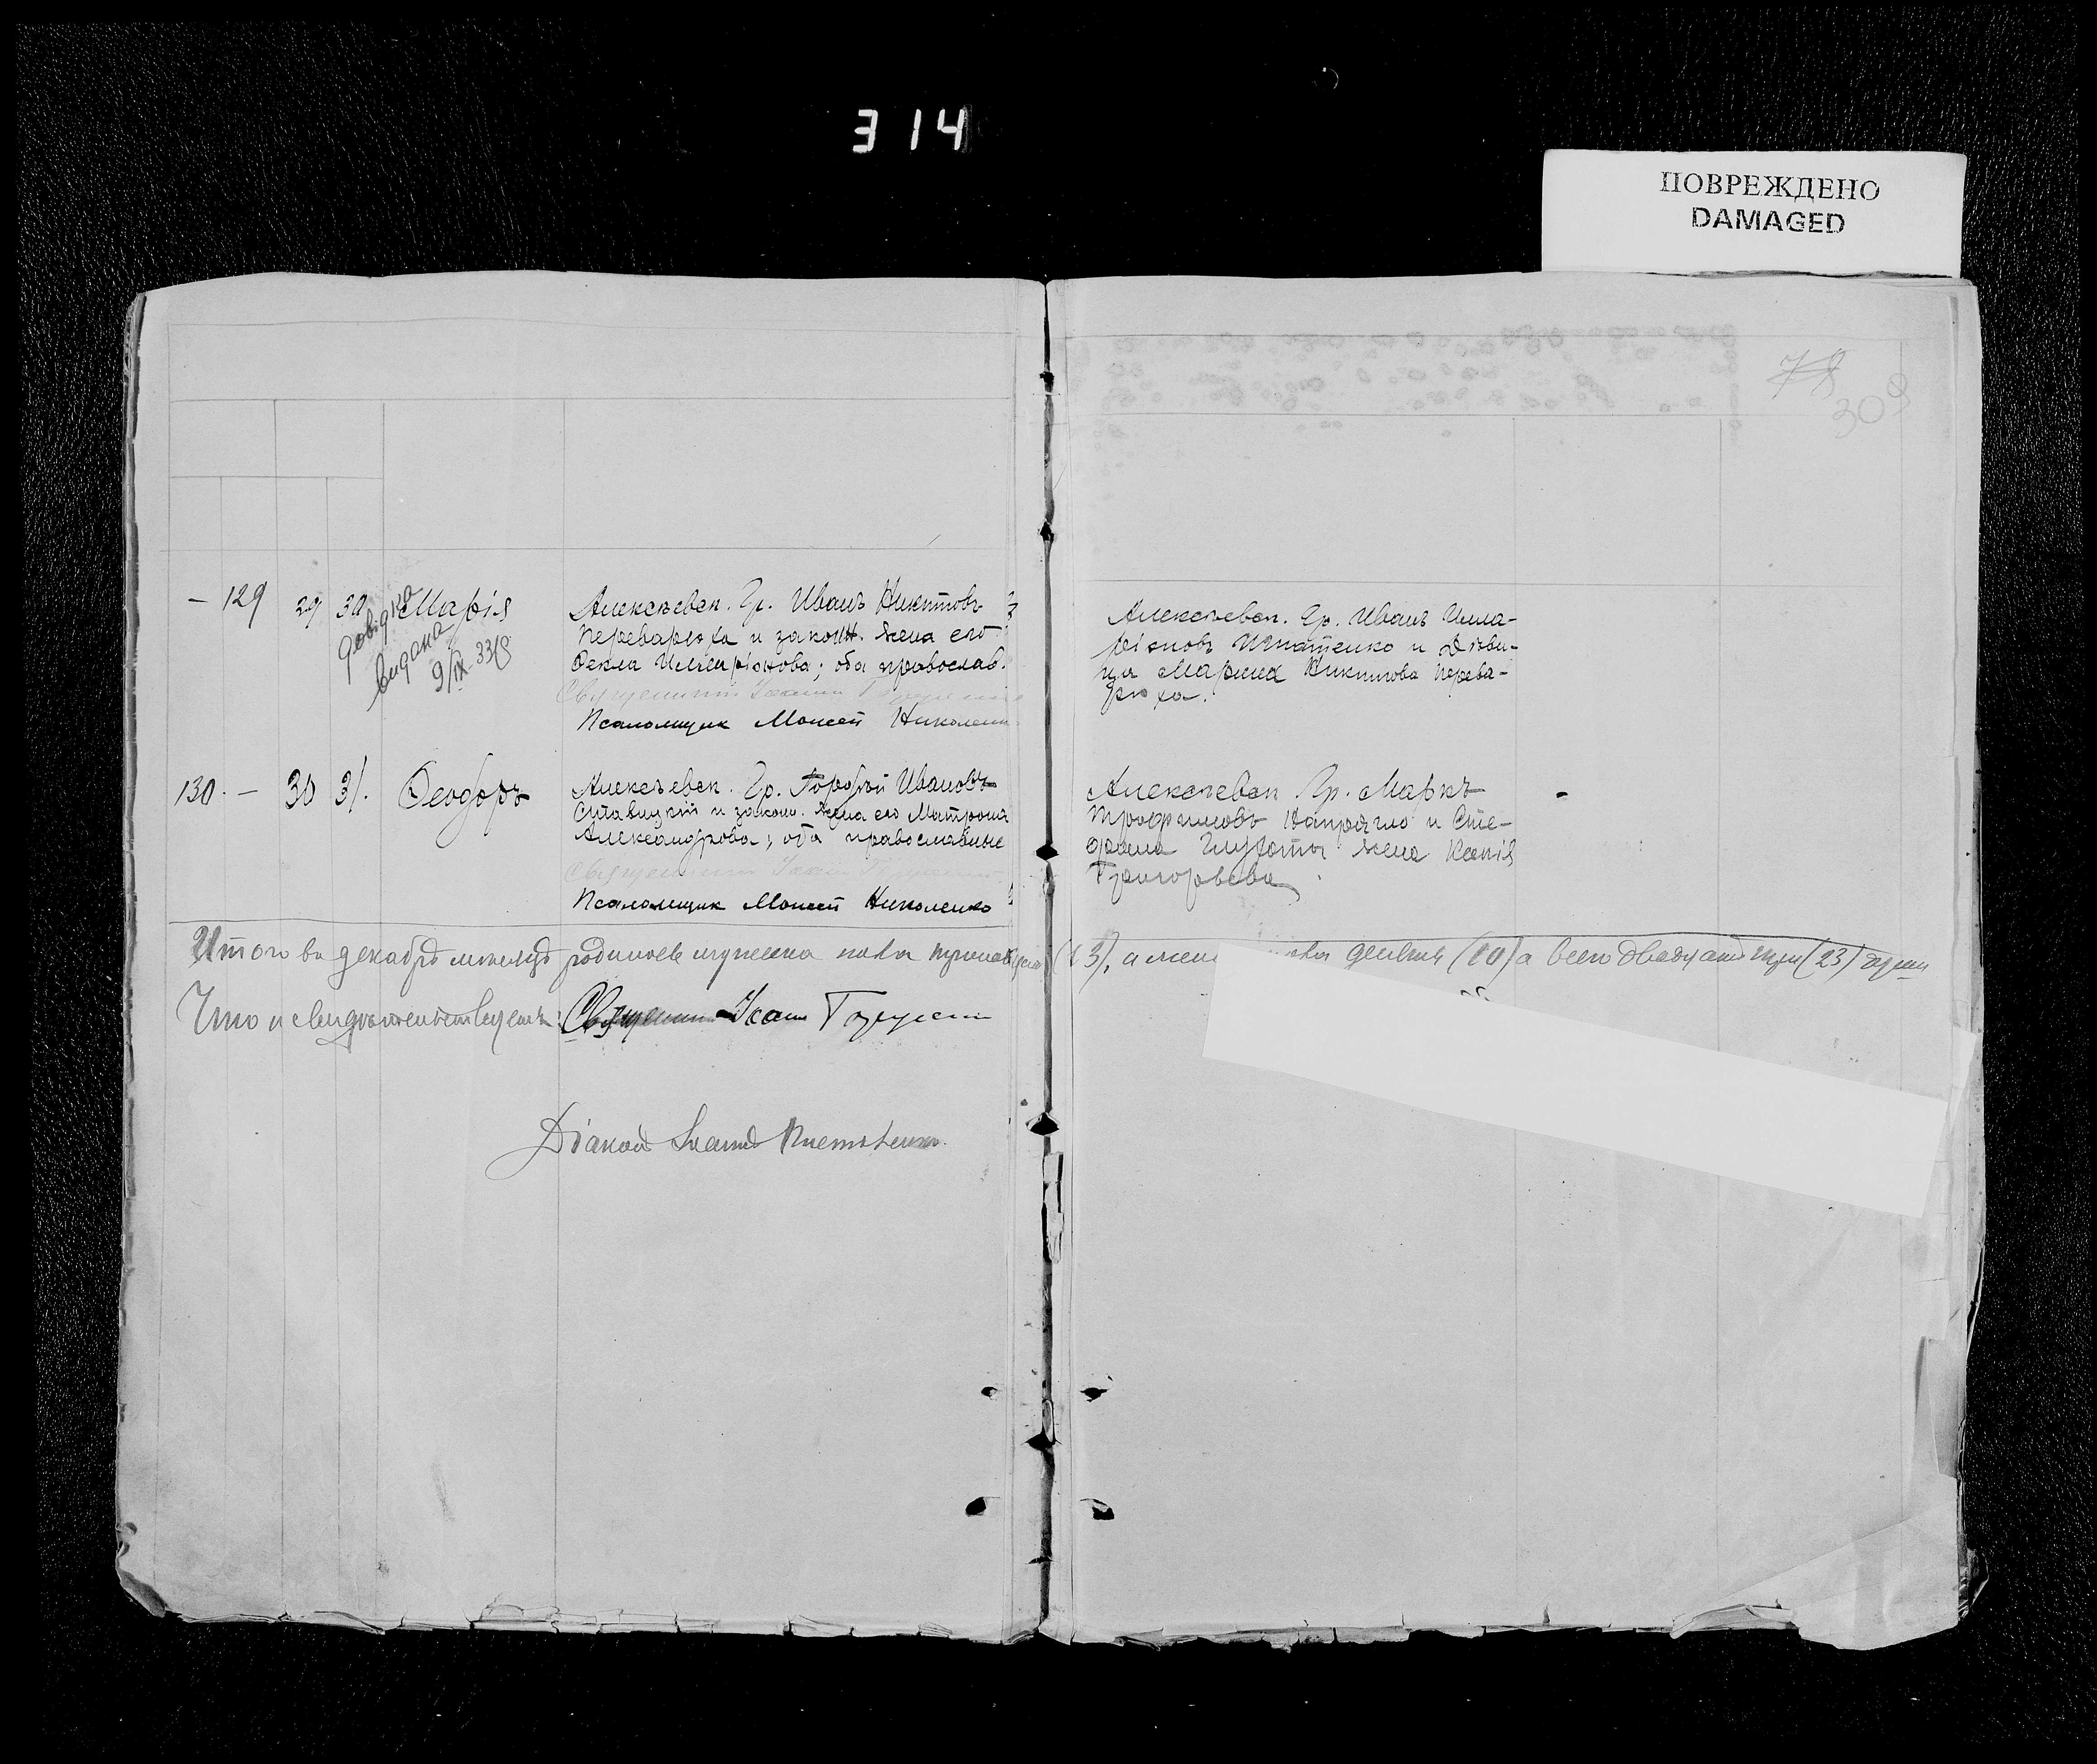 314
ПОВРЕЖДЕНО
DAMAGED
78
309
— 129 29 30 Марія
довідка
видана
9/IX 33
Алексѣевск. Гр. Иванъ Никитовъ
Переварюха и законн. жена его
Ѳекла Илларіонова; оба православ.
Священник Іоанн
Псаломщик Моисей Николенк
Алексѣевск. Гр. Иванъ Илла-
ріоновъ Игнатенко и дѣви-
ца Марина Никитова Перева-
рюха.
130 — 30 31. Ѳеодоръ
Алексѣевск. Гр. Ивановъ
Ставицкій и законн. жена его Матрона
Александрова; оба православные
Священник Іоанн
Псаломщик Моисей Николенко
Алексѣевск Гр. Маркъ
Трофимовъ Напрягло и Сте-
фана жена Ксенія
Григорьева
Итого въ декабрѣ мѣсяцѣ родилось мужеска пола тринадцать (13), а жен пола десять (10) а всего двадцать три (23) души
Что и свидѣтельствуемъ: Священник Іоанн
Діаконъ Іоаннъ